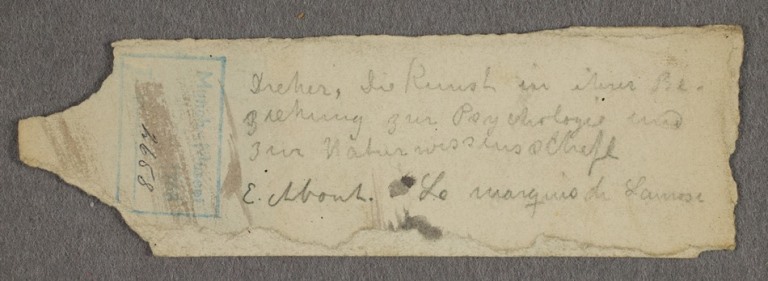 Dreher, Die Kunst in ihrer Be-
ziehung zur Psychologie und
zur Naturwissenschaft
E. About. Le marquis de Lanrose
Munch-Museet